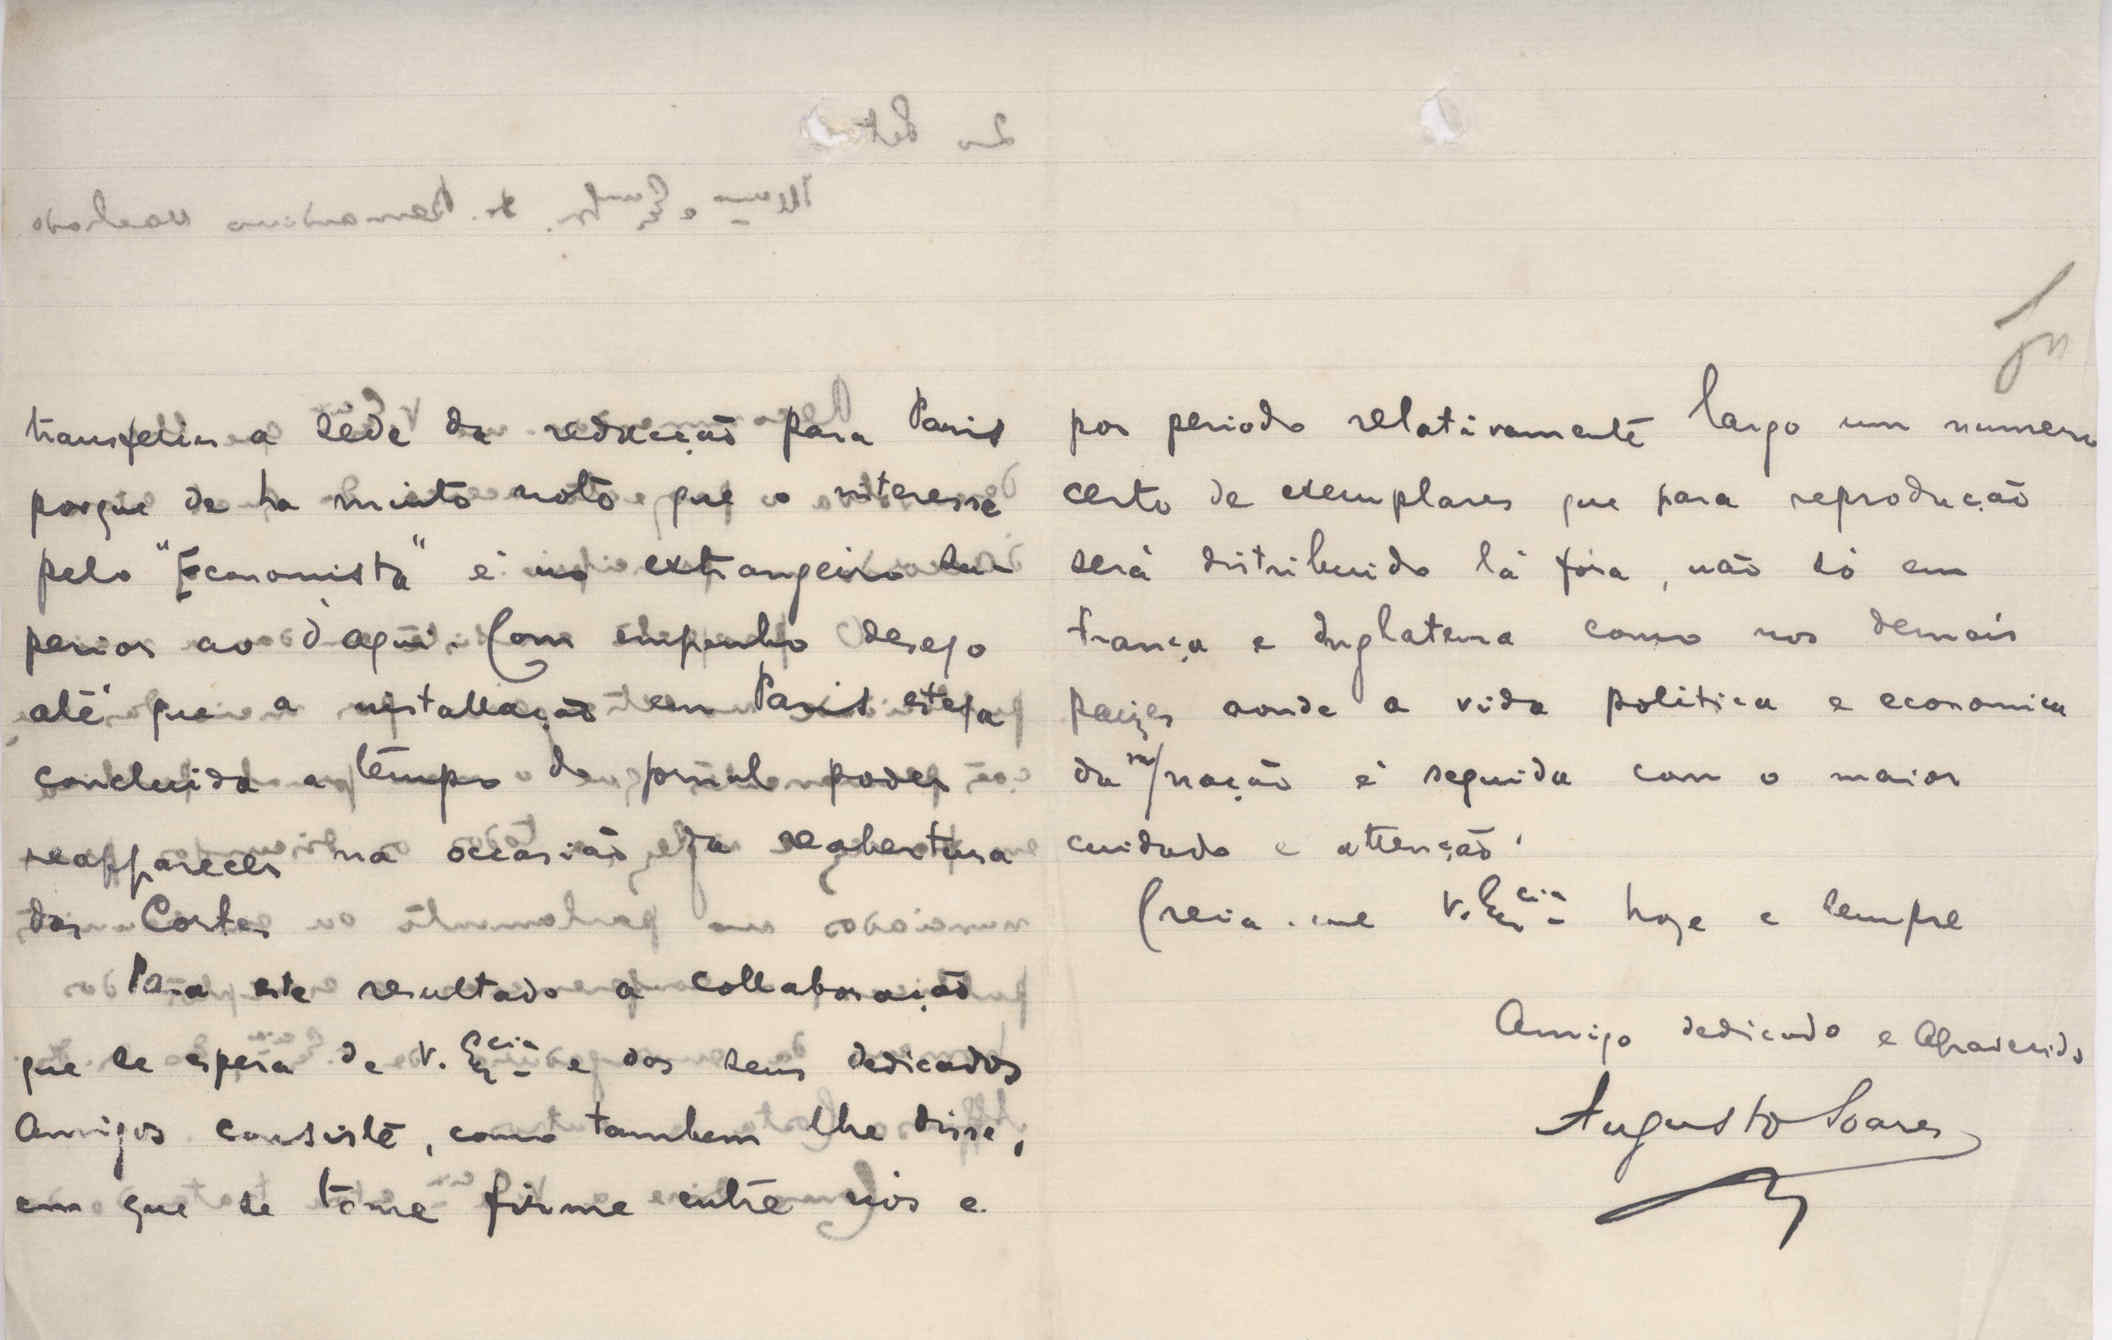 transferir a séde da redacção para Paris
porque de ha muito noto que o interesse
pelo "Economista" é no extrangeiro su-
perior ao d'aqui. Com empenho desejo
até que a installação em Paris esteja
concluida a tempo do jornal poder
reapparecer na occasião da reabertura
das Cortes
Para este resultado a collaboração
que se espera de V. Excia e dos seus dedicados
Amigos consiste, como tambem lhe disse,
em que se tome firme entre nós e
por periodo relativamente largo um numero
certo de exemplares que para reproducção
será distribuido lá fóra, não só em
França e Inglaterra como nos demais
paizes aonde a vida politica e economica
da nação é seguida com o maior
cuidado e attenção.
Creia-me V. Excia hoje e sempre
Amigo dedicado e Agradecido
Augusto Soares